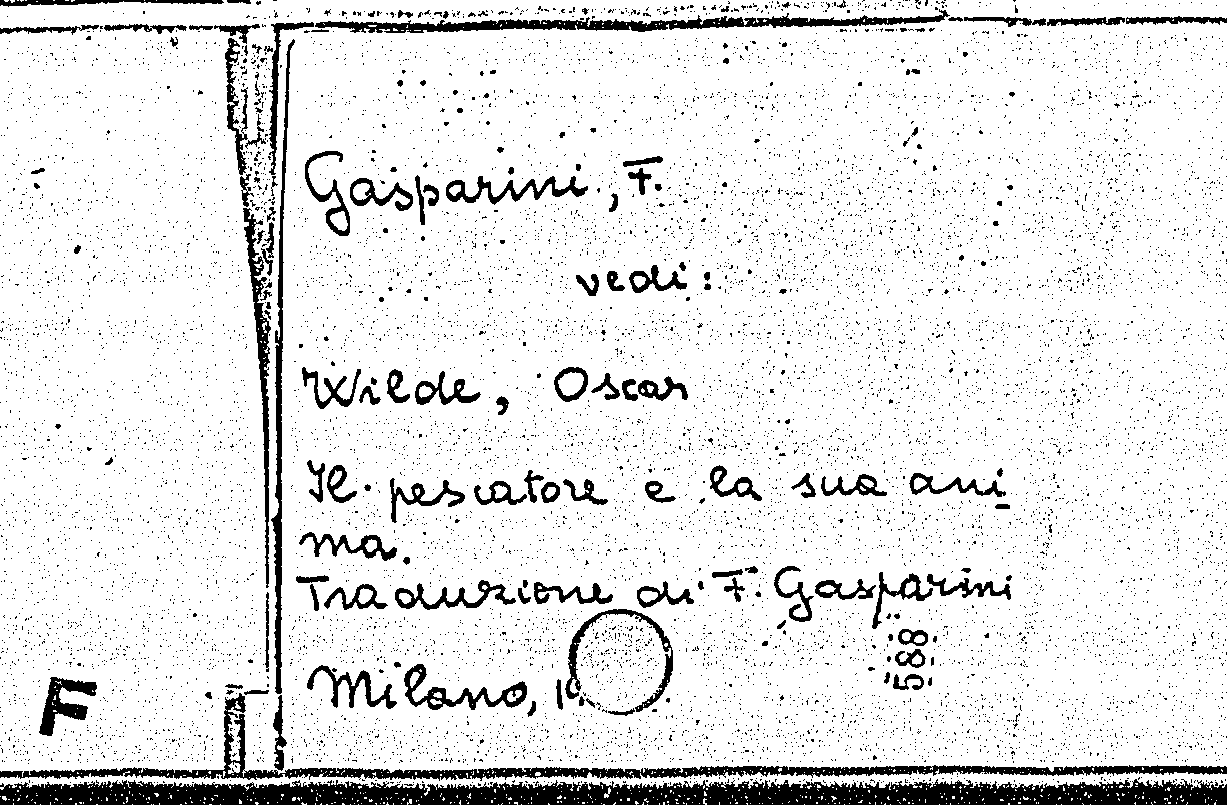 Gasparini, F.
vedi:
Wilde, Oscar
Il pescatore e la sua ani
ma.
Traduzione di F. Gasparini
Milano,
588
F